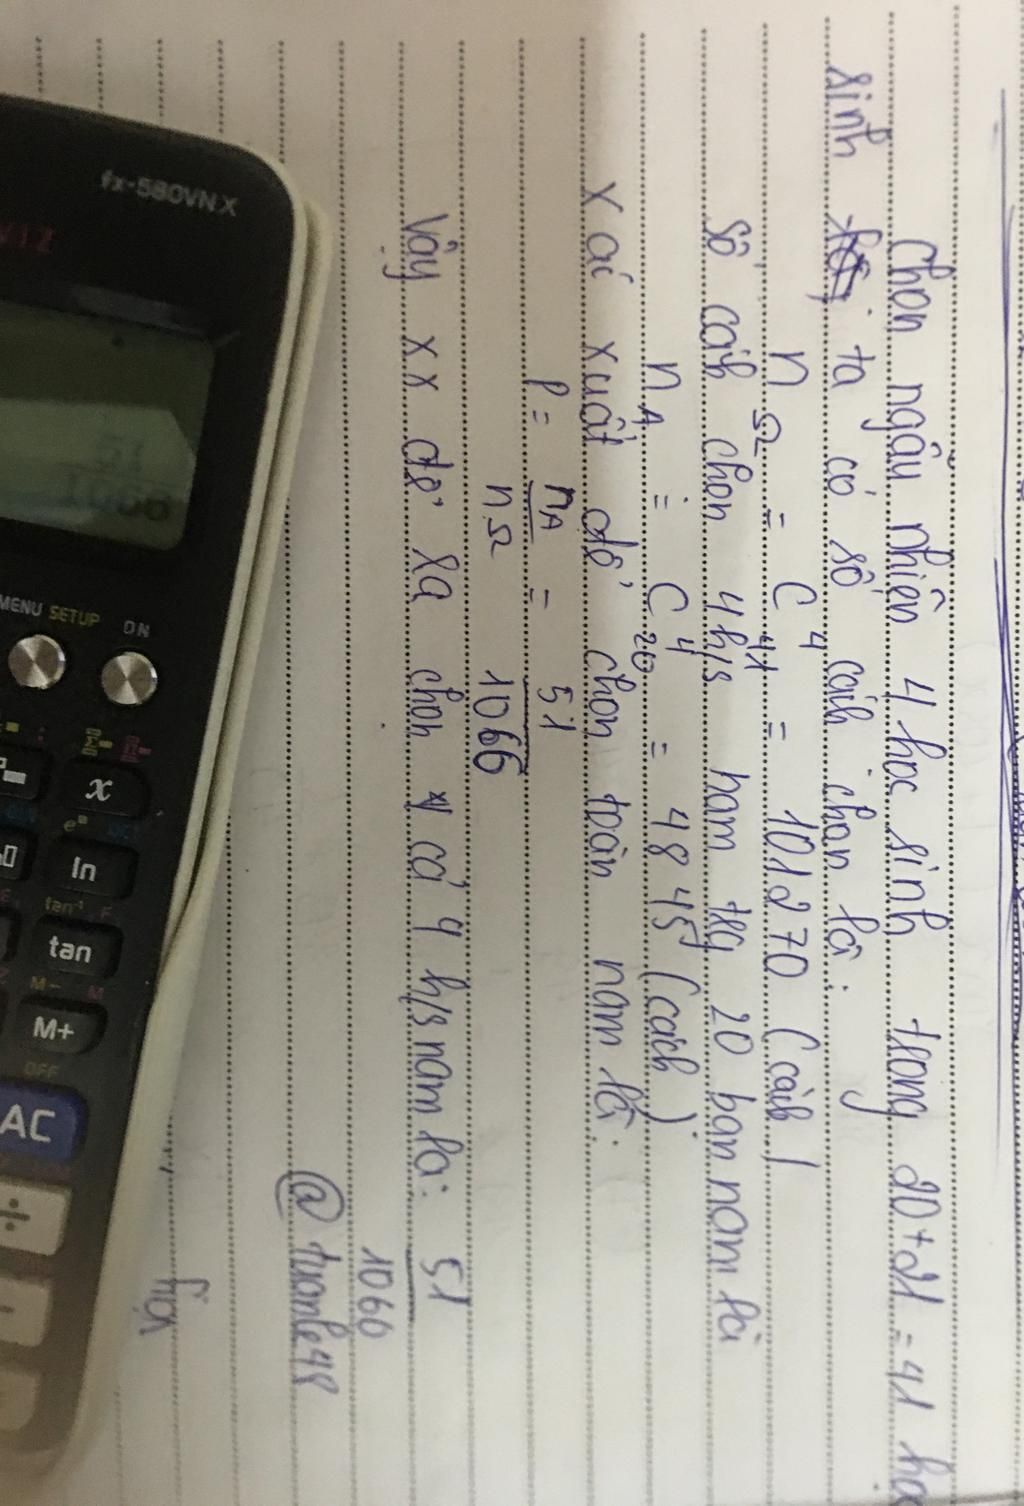 Chọn ngẫu nhiên 4 học sinh trong 20+21 = 41 họ
sinh ta có số cách chọn là:
nΩ = C⁴₄₁ = 101270 (cách)
Số cách chọn 4h/s nam trg 20 bạn nam là
nA = C⁴₂₀ = 4845 (cách)
Xác xuất để chọn toàn nam là:
P = nA/nΩ = 51/1066
Vậy xx để la chọn cả 4 h/s nam là: 51/1066
@tuanle48
fx-580VN X
VIZ
51
1066
MENU SETUP ON
x
ln
tan⁻¹ F
tan
M- M
M+
OFF
AC
÷
-